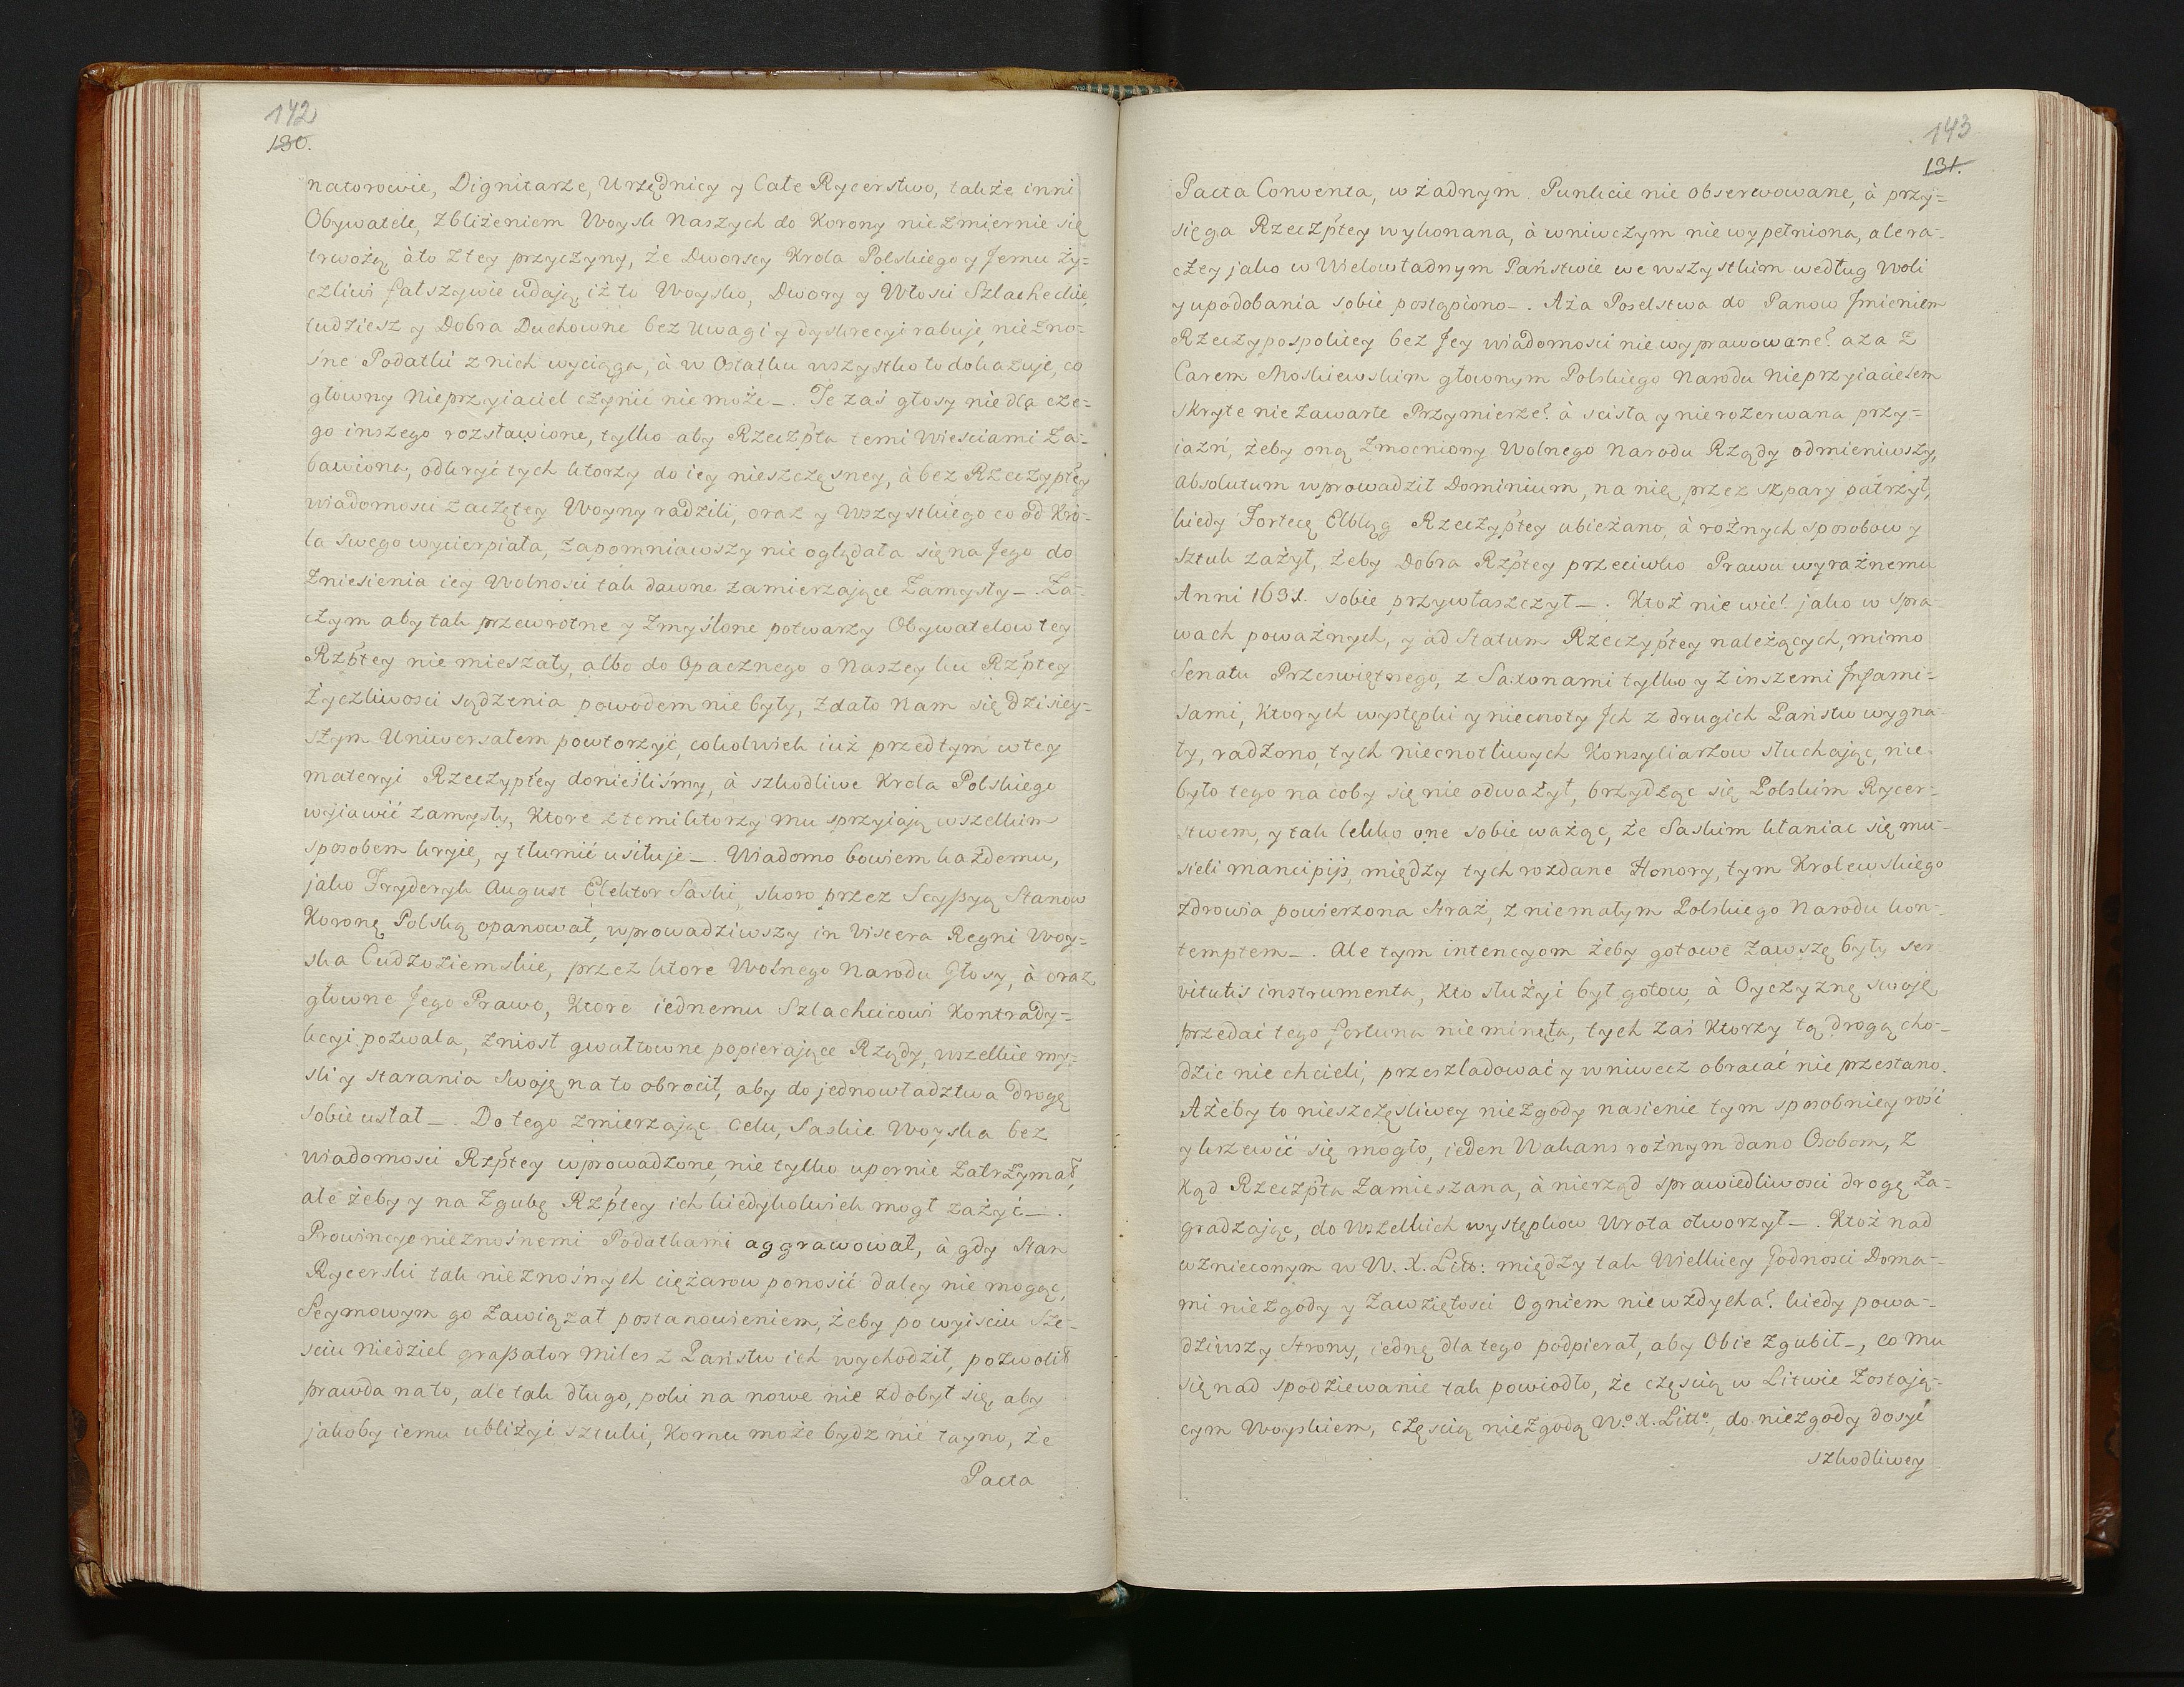 142
130.
natorowie, Dignitarze, Urzędnicy y Całe Rycerstwo, także inni
Obywatele, zbliżeniem Woysk Naszych do Korony niezmiernie się
trwożą, à to z tey przyczyny, że Dworscy Krola Polskiego y Jemu ży=
czliwi fałszywie udają, iż to Woysko, Dwory y Włosci Szlacheckie,
tudziesz y Dobra Duchowne bez Uwagi y dyskrecyi rabuje, niezno-
śne Podatki z nich wyciąga, à w Ostatku wszystko to dokazuje, co
głowny Nieprzyiaciel czynić nie może_. Te zaś głosy nie dla cze=
go inszego rozsławione, tylko aby Rzeczpta temi wiesciami Za=
bawiona, odkryć tych ktorzy do iey nieszczęsney, à bez Rzeczyptey
wiadomosci zaczętey Woyny radzili, oraz y Wszystkiego co od Kro-
la swego wycierpiała, zapomniawszy nie oglądała się na Jego do
Zniesienia iey Wolnosci tak dawne zamierzające Zamysły_. Za=
czym aby tak przewrotne y Zmyślone potwarzy Obywatelow tey
Rzptey nie mieszały, albo do Opacznego o Naszey ku Rzptey
Życzliwosci sądzenia powodem nie były, Zdało Nam się dzisiey=
szym Uniwersałem powtorzyć, cokolwiek iuż przedtym w tey
materyi Rzeczyptey donieśliśmy, à szkodliwe Krola Polskiego
wyiawić zamysły, Ktore z temi ktorzy mu sprzyiają wszelkim
sposobem kryie, y tłumić usiłuje_. Wiadomo bowiem każdemu,
jako Fryderyk August Elektor Saski, skoro przez Scyßyą Stanow
Koronę Polską opanował, wprowadziwszy in Viscera Regni Woy=
ska Cudzoziemskie, przez ktore Wolnego Narodu Głosy, à oraz
głowne Jego Prawo, Ktore iednemu Szlachcicowi Kontrady=
kcyi pozwala, Zniost gwałtowne popierające Rządy, wszelkie my=
sli y starania Swoje na to obrocił, aby do jednowładztwa drogę
sobie usłał_. Do tego zmierzając Celu, Saskie Woyska bez
wiadomosci Rzptey wprowadzone, nie tylko upornie Zatrzymał,
ale żeby y na Zgubę Rzptey ich kiedykolwiek mogł zażyć_.
Prowincye nieznośnemi Podatkami aggrawował, à gdy Stan
Rycerski tak nieznośnych ciężarow ponosić daley nie mogąc,
Seymowym go Zawiązał postanowieniem, żeby po wyisciu Sze=
sciu Niedziel graßator Miles z Państw ich wychodził, pozwolił
prawda na to, ale tak długo, poki na nowe nie zdobył się, aby
jakoby iemu ubliżyć sztuki, Komu może bydz nie tayno, że
Pacta
143
131.
Pacta Conventa, w żadnym Punkcie nie obserwowane, à przy=
sięga Rzeczptey wykonana, à w niwczym nie wypełniona, ale ra-
czey jako w Wielowładnym Państwie we wszystkim według Woli
y upodobania sobie postąpiono_. Aza Poselstwa do Panow Jmieniem
Rzeczypospolitey bez Jey wiadomosci nie wyprawowane? aza z
Carem Moskiewskim głownym Polskiego Narodu Nieprzyiacielem
skryte nie zawarte Przymierze? à scisła y nierozerwana przy=
iazń, żeby oną Zmocniony Wolnego Narodu Rządy odmieniwszy,
absolutum wprowadził Dominium, na nię przez szpary patrzył,
kiedy Fortecę Elbląg Rzeczyptey ubieżano, à rożnych sposobow y
sztuk zażył, żeby Dobra Rzptey przeciwko Prawu wyraźnemu
Anni 1631. sobie przywłaszczył_. Ktoż nie wie? jako w spra-
wach poważnych, y ad Statum Rzeczyptey należących, mimo
Senatu Przeświętnego, z Saxonami tylko y z inszemi Jnfami-
sami, Ktorych występki y niecnoty Jch z drugich Państw wygna-
ły, radzono, tych niecnotliwych Konsyliarzow słuchając, nie-
było tego na coby się nie odważył, brzydząc się Polskim Rycer=
stwem, y tak lekko one sobie ważąc, że Saskim kłaniac się mu-
sieli mancipijs, między tych rozdane Honory, tym Krolewskiego
Zdrowia powierzona Straż, z niemałym Polskiego Narodu kon-
temptem_. Ale tym intencyom żeby gotowe Zawszę były ser-
vitutis instrumenta, Kto służyć był gotow, à Oyczyznę swoję
przedać tego fortuna nie minęła, tych zaś Ktorzy tą drogą cho-
dzic nie chcieli, przeszladować y wniwecz obracać nie przestano.
Ażeby to nieszczęsliwey niezgody nasienie tym sposobniey rość
y krzewić się mogło, jeden Wakans rożnym dano Osobom, z
Kąd Rzeczpta Zamieszana, à nierząd sprawiedliwosci drogę Za-
gradzając, do Wszelkich występkow Wrota otworzył_. Ktoż nad
wznieconym w W. X. Litt: między tak Wielkiey Godnosci Doma-
mi niezgody y Zawziętosci Ogniem nie wzdycha? kiedy powa-
dziwszy Strony, iednę dla tego podpierał, aby Obie Zgubił_, co mu
się nad spodziewanie tak powiodło, że częscią w Litwie Zostają-
cym Woyskiem, częscią niezgodą Wo. X. Litto., do niezgody dosyć
szkodliwey